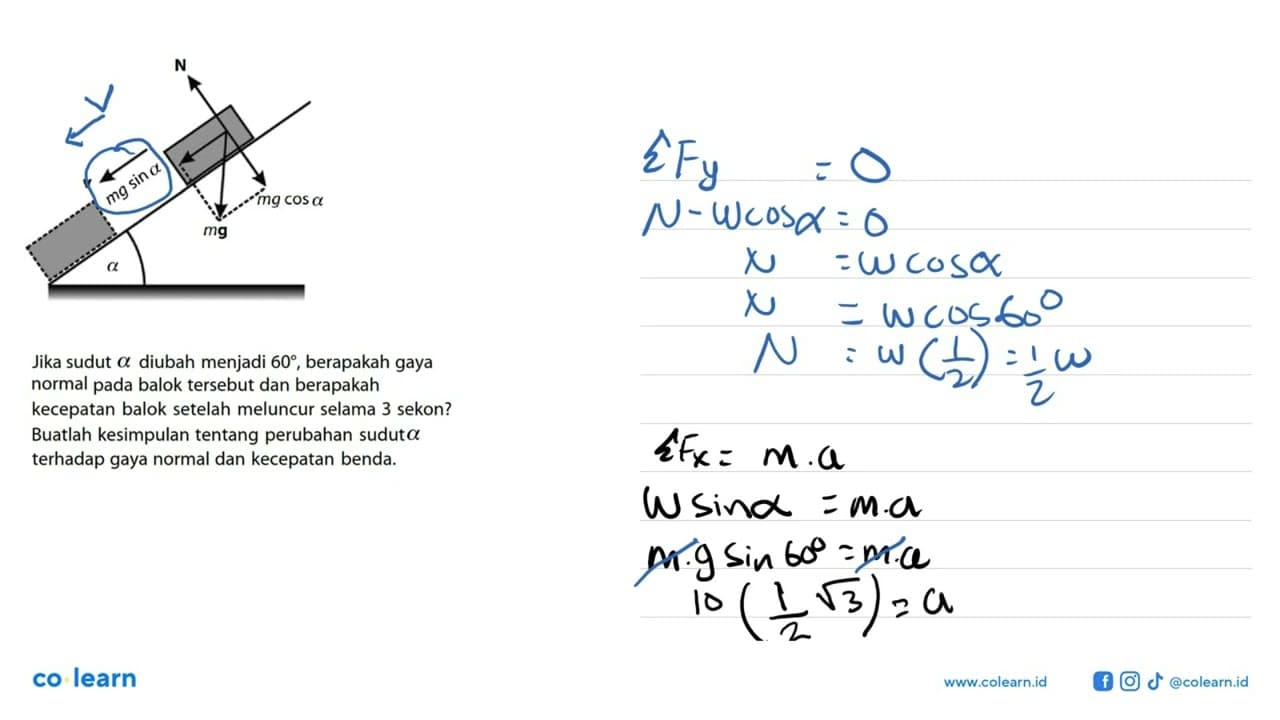 N
V
mg sin α
mg cos α
mg
α
Jika sudut α diubah menjadi 60°, berapakah gaya
normal pada balok tersebut dan berapakah
kecepatan balok setelah meluncur selama 3 sekon?
Buatlah kesimpulan tentang perubahan sudut α
terhadap gaya normal dan kecepatan benda.
ΣFy = 0
N - W cos α = 0
N = W cos α
N = W cos 60°
N = W (1/2) = 1/2 W
ΣFx = m.a
W sin α = m.a
m.g sin 60° = m.a
10 (1/2 √3) = a
co learn
www.colearn.id
@colearn.id